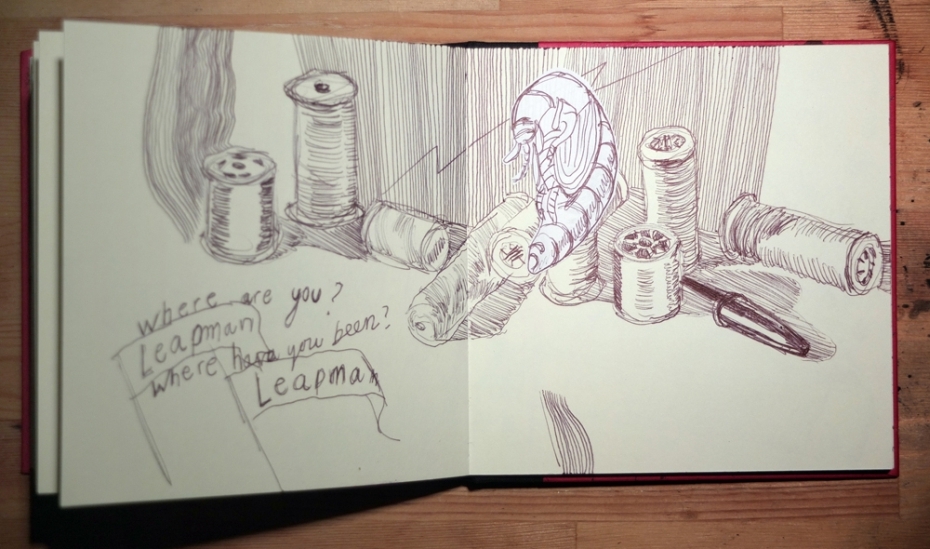 where are you?
Leapman
where have you been?
Leapman